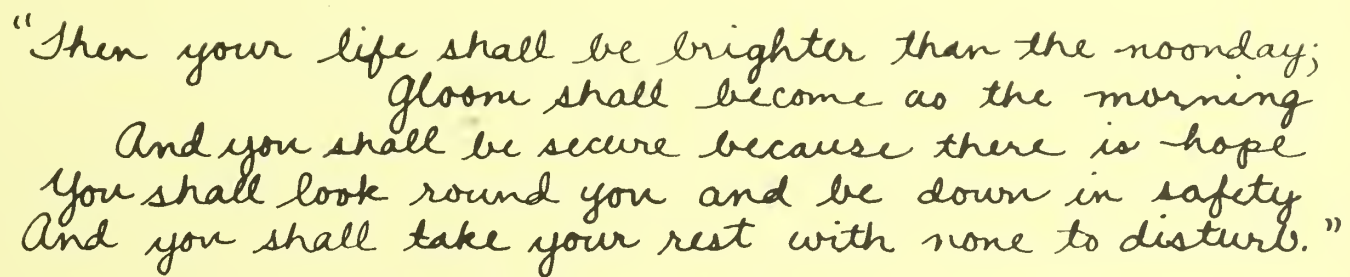 "Then your life shall be brighter than the noonday;
Gloom shall become as the morning
And you shall be secure because there is hope
You shall look round you and be down in safety
And you shall take your rest with none to disturb."